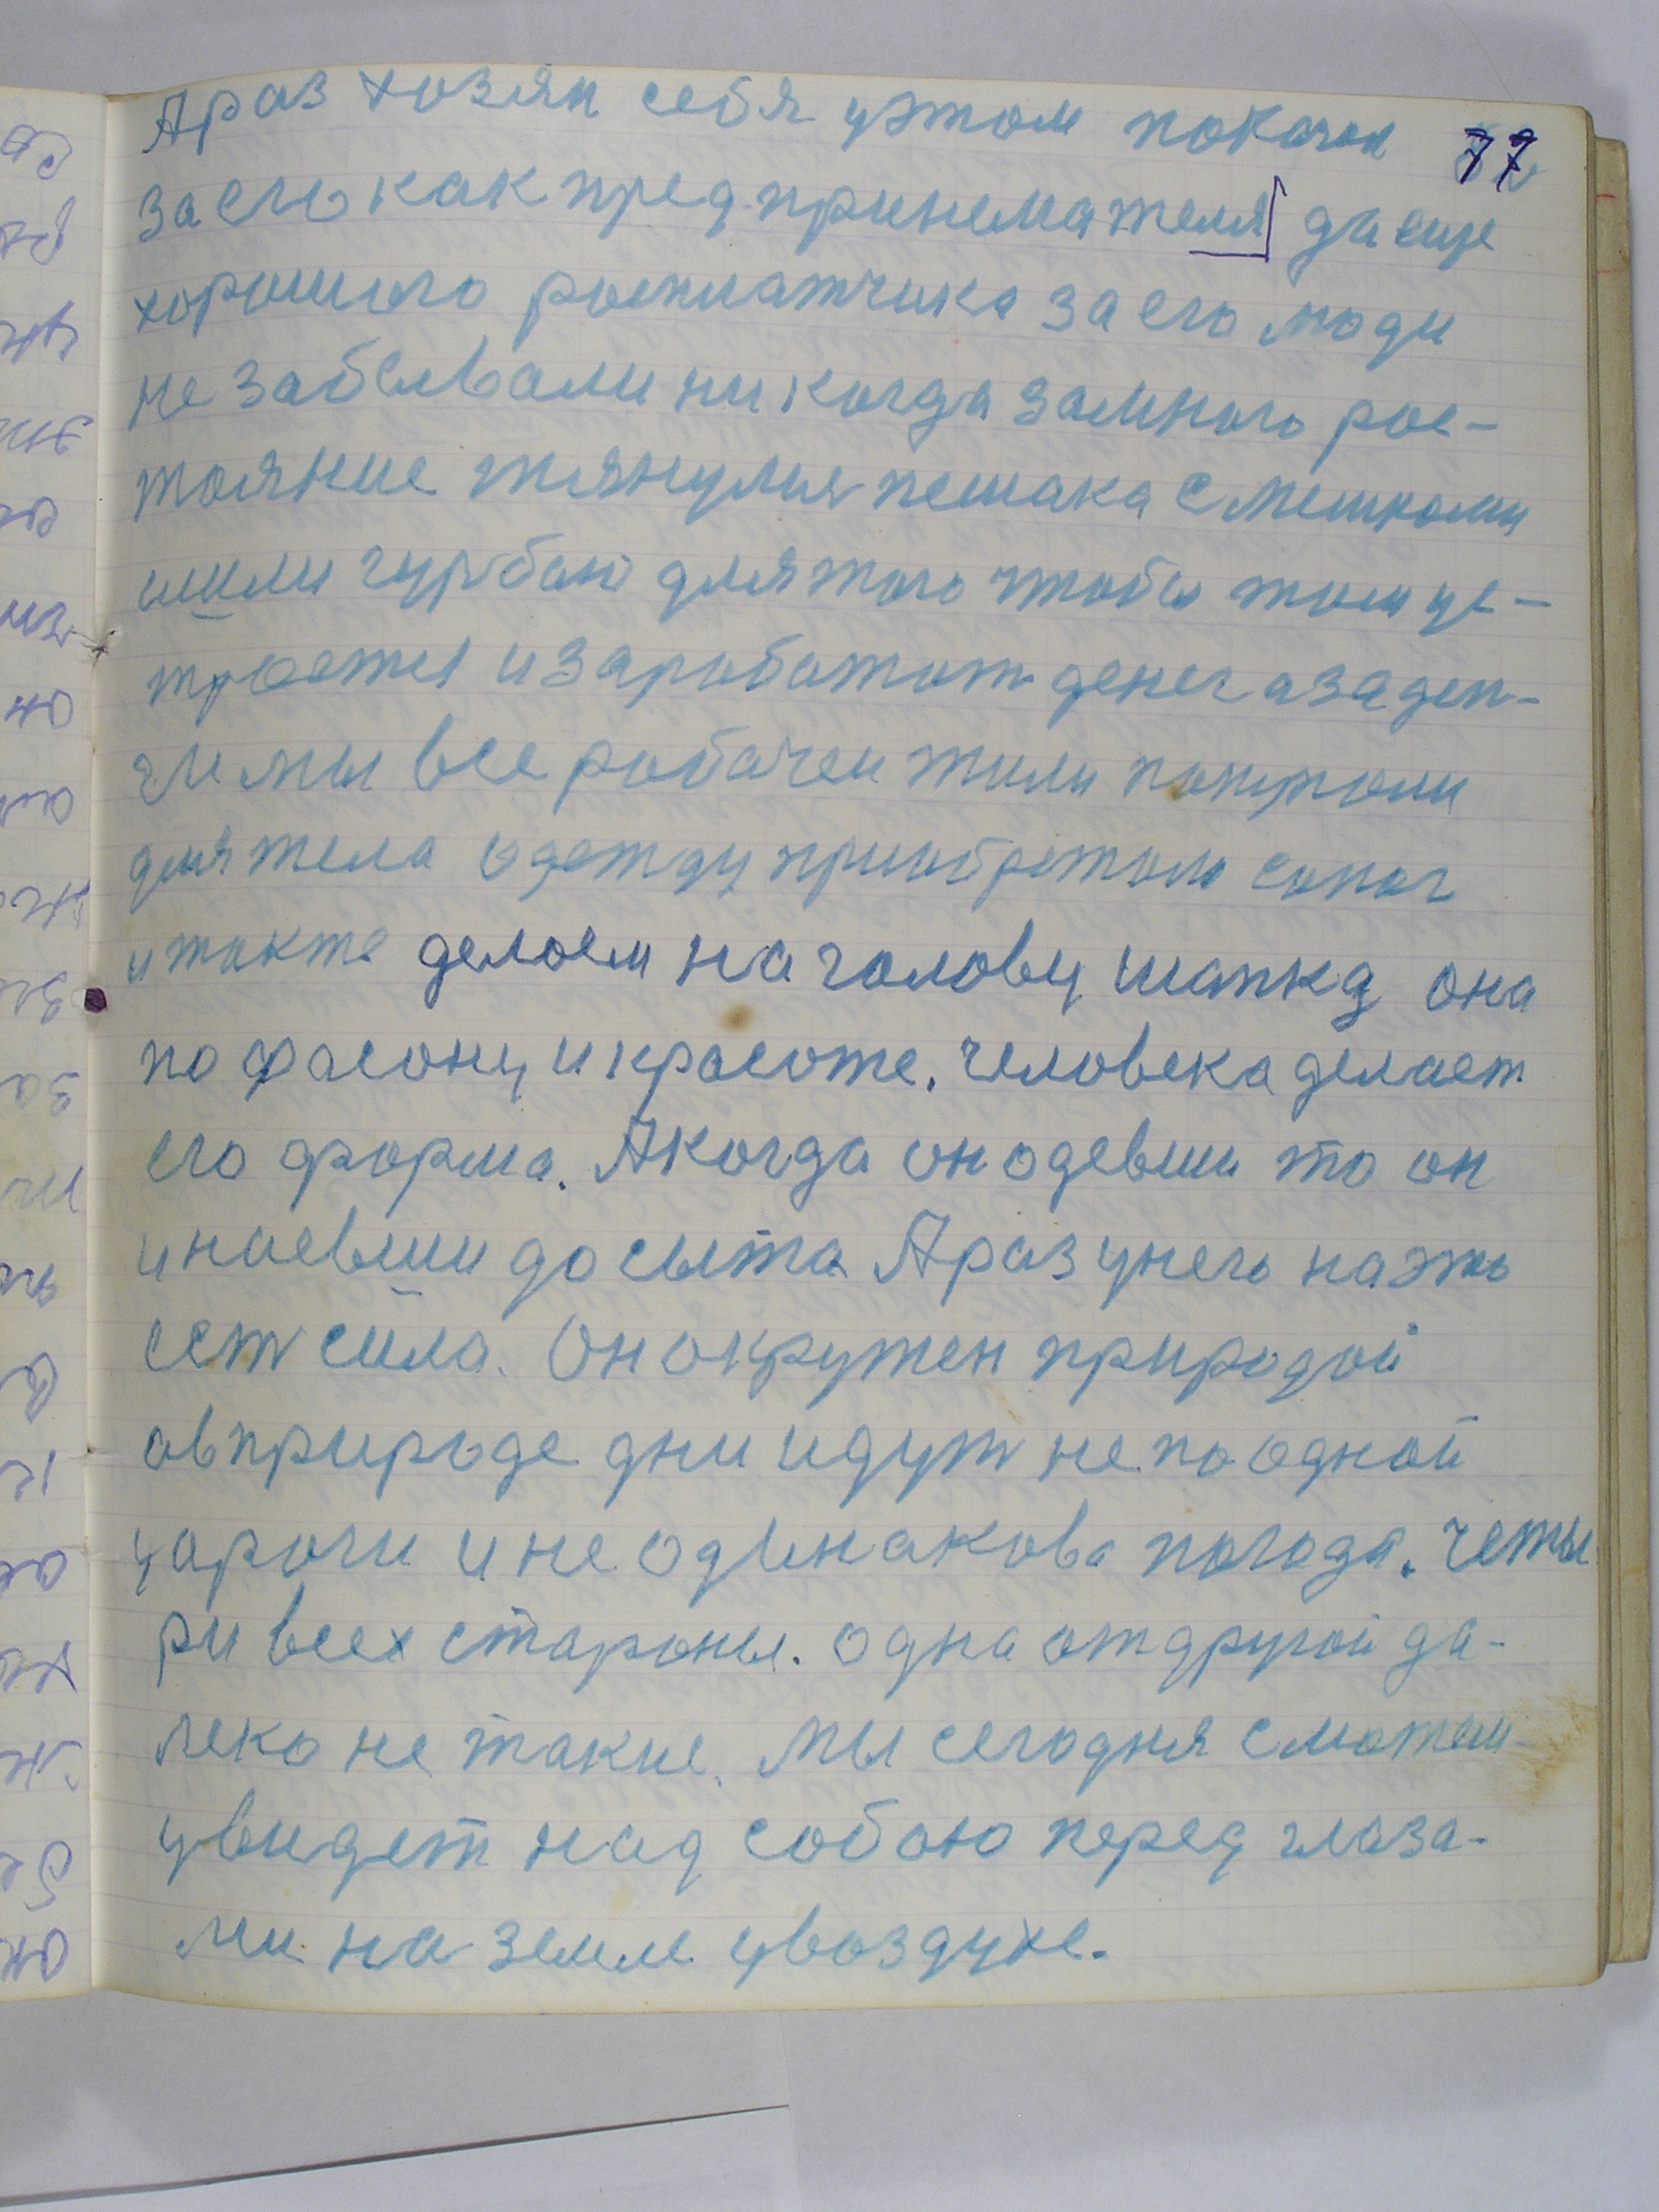 77
А раз хозяи себя уэтом показал
за его как предпринемателя да еще
хорошего росплатчика за его люди
не забывали никогда замного рос-
тояние тянулися пешака с мешками
шли гурбою для того чтобы там ус-
троется и заработат денег а за ден-
ги мы все робачеи жили покупали
для тела одежду приобретали сапог
и также делоем на голову шапкą она
по фасону и красоте. человека делает
его форма. А когда он одевши то он
и наевши до сыта А раз унего на это
ест сила. Он окружен природой
а в природе дни идут не по одной
у ароги и не одинакова погода. Четы
ри всех староны. одна от другой да-
леко не такие. Мы сегодня сможем
увидет над собою перед глаза-
ми на земле у воздухе.